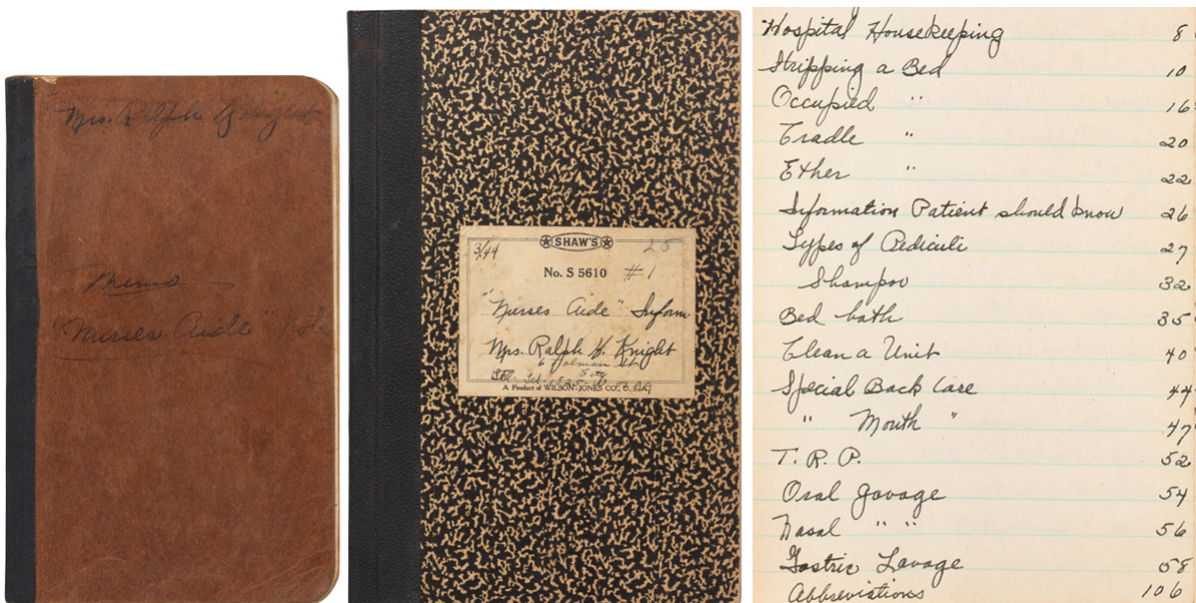 Mrs. Ralph H. Knight
Memo
"Nurses Aide" Notes
SHAW'S
25
3/44
No. S 5610 #1
"Nurses Aide" Inform
Mrs. Ralph H. Knight
6 Holman St
A Product of WILSON-JONES CO., U.S.A.
Hospital Housekeeping 8
Stripping a Bed 10
Occupied " 16
Cradle " 20
Ether " 22
Information Patient should know 26
Types of Pediculi 27
Shampoo 32
Bed bath 35
Clean a Unit 40
Special Back Care 44
" Mouth " 47
T. R. P. 52
Oral Gavage 54
Nasal " " 56
Gastric Lavage 58
Abbreviations 106